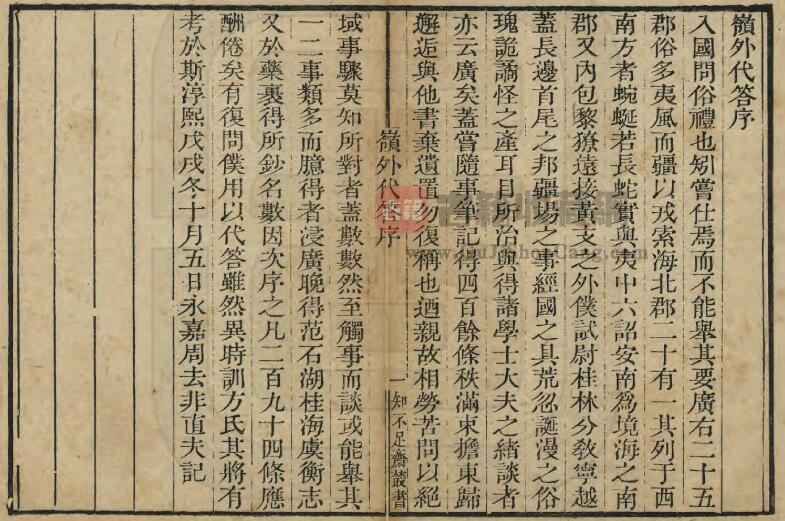 嶺外代答序
入國問俗禮也矧嘗仕焉而不能舉其要廣右二十五
郡俗多夷風而疆以戎索海北郡二十有一其列于西
南方者蜿蜒若長蛇實與夷中六詔安南爲境海之南
郡又內包黎獠遠接黃支之外僕試尉桂林分敎寧越
蓋長邊首尾之邦疆場之事經國之具荒忽誕漫之俗
瑰詭譎怪之產耳目所治與得諸學士大夫之緒談者
亦云廣矣蓋嘗隨事筆記得四百餘條秩滿束擔東歸
邂逅與他書棄遺置勿復稱也迺親故相勞苦問以絕
嶺外代答序
一知不足齋叢書
域事驟莫知所對者蓋數數然至觸事而談或能舉其
一二事類多而臆得者浸廣晚得范石湖桂海虞衡志
又於藥裹得所鈔名數因次序之凡二百九十四條應
酬倦矣有復問僕用以代答雖然異時訓方氏其將有
考於斯淳熙戊戌冬十月五日永嘉周去非直夫記